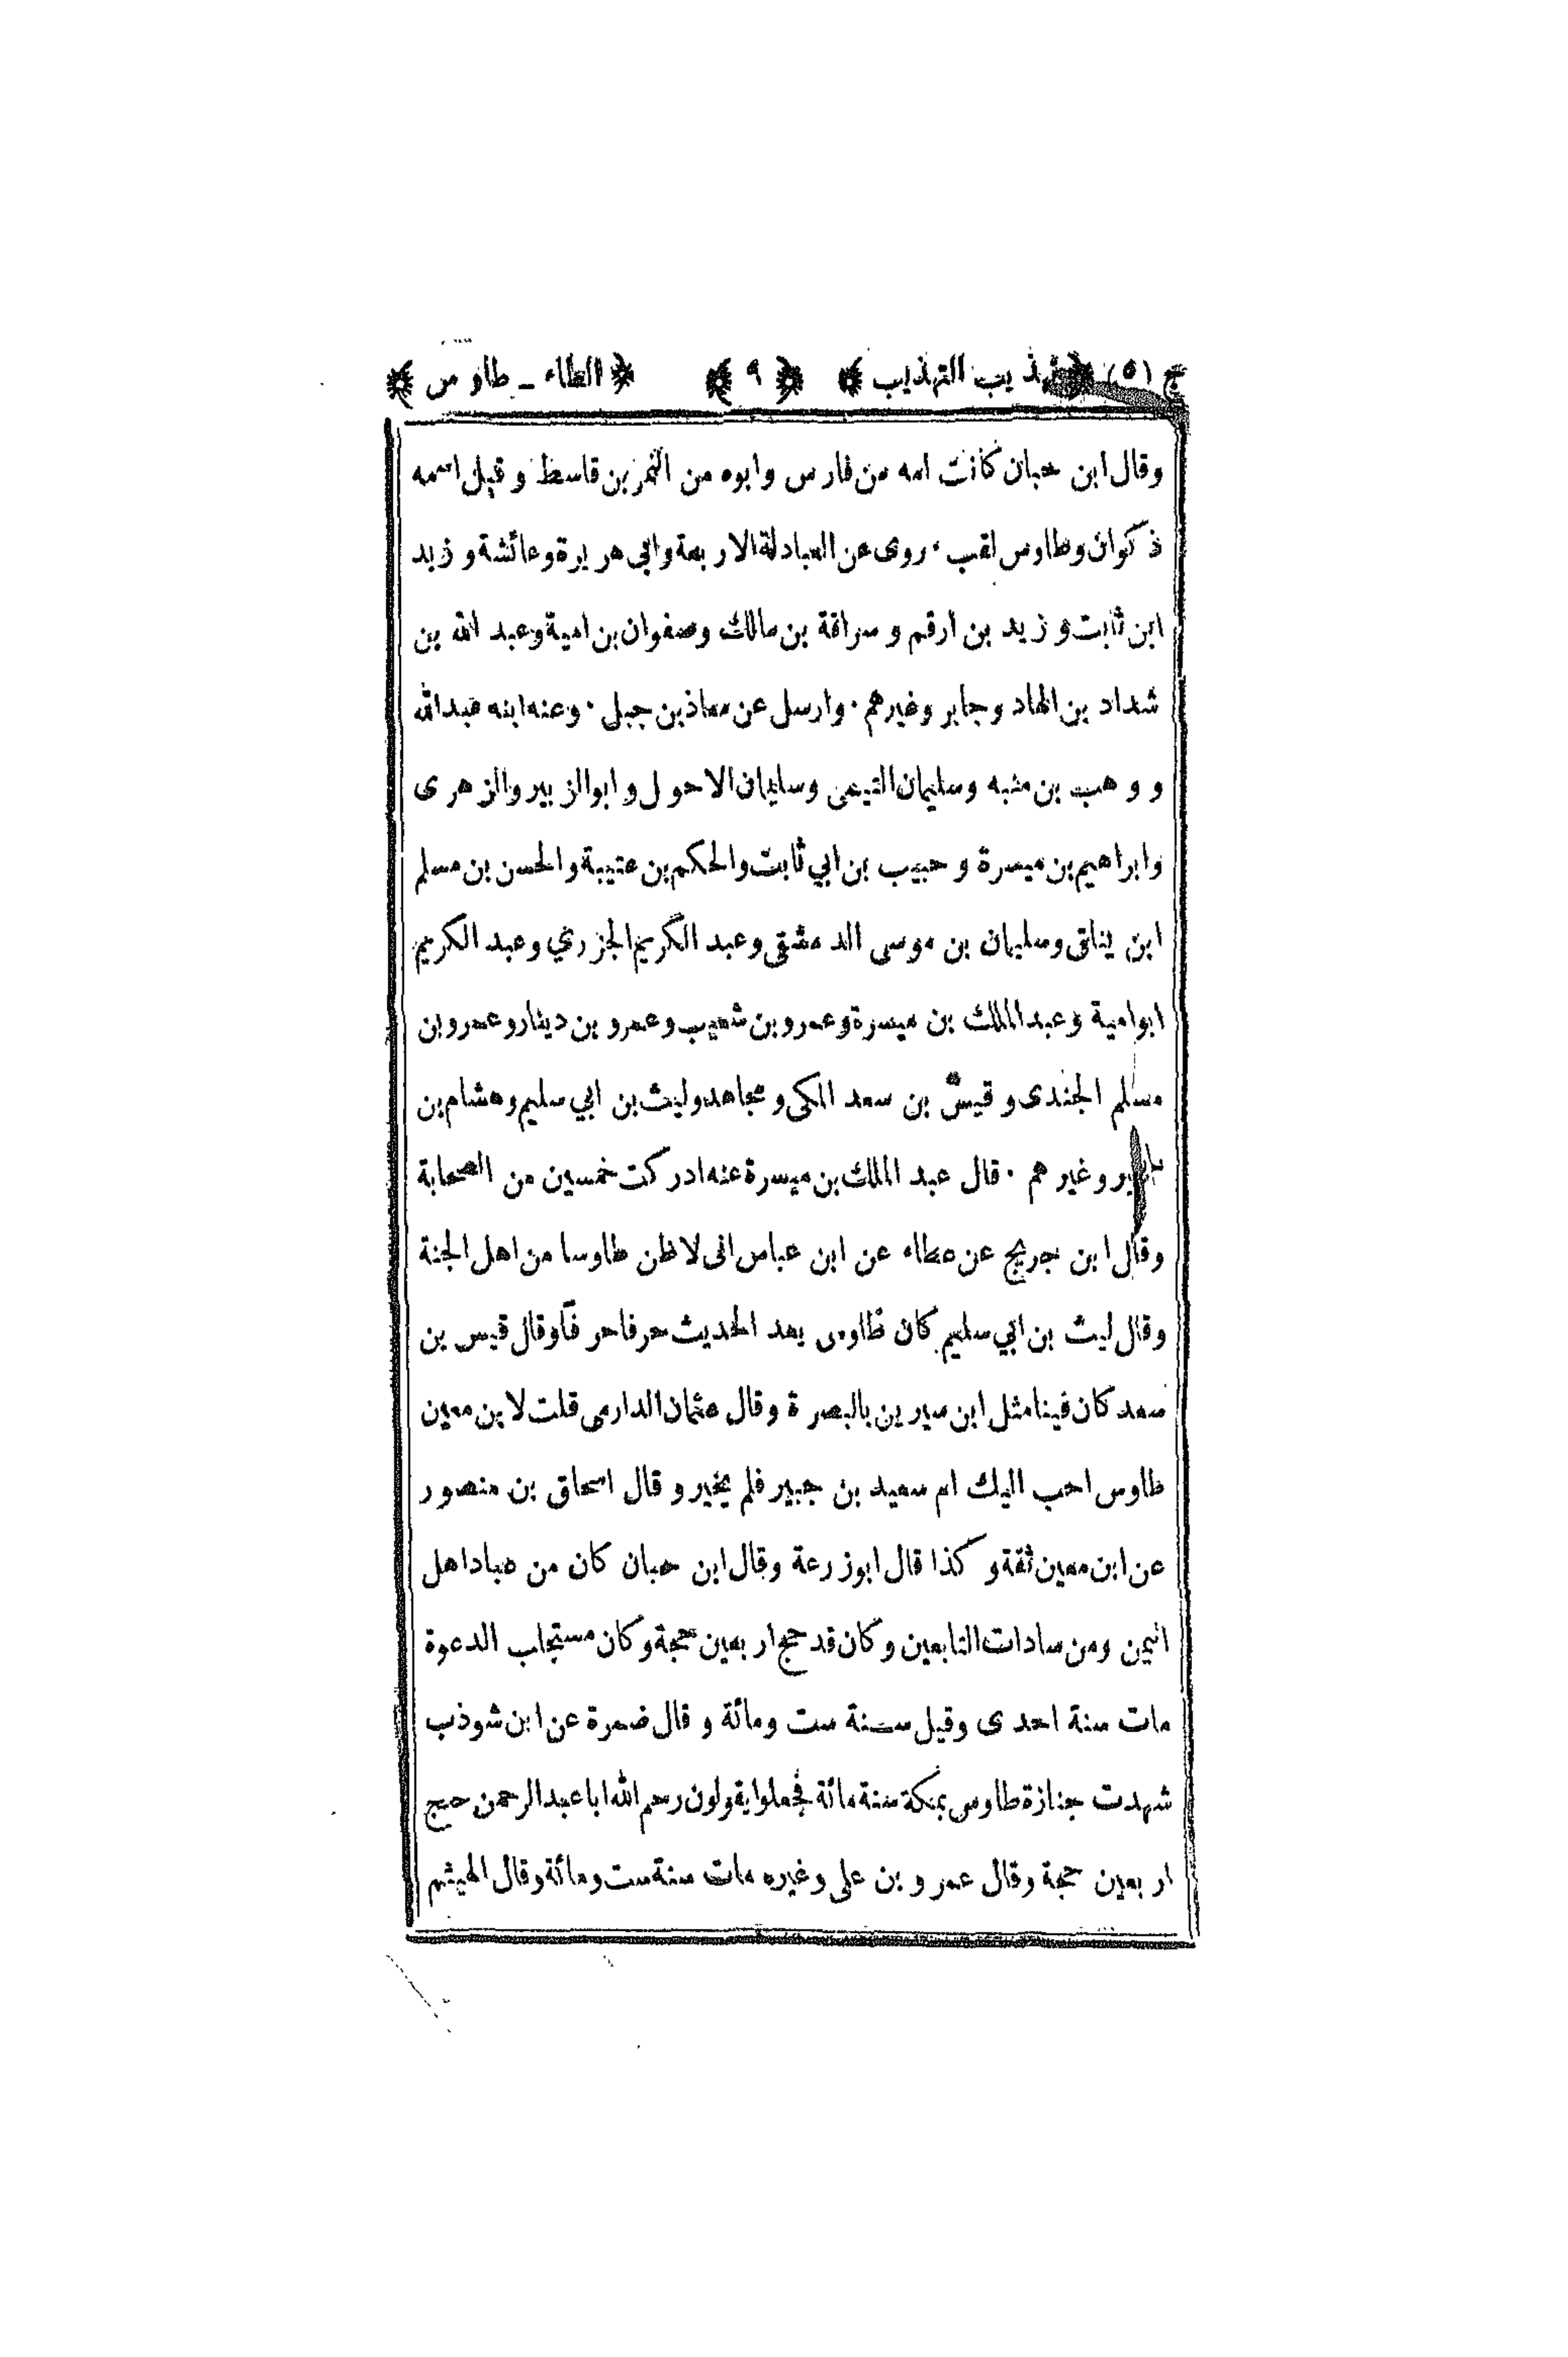 ج (٥) ﴿تهذيب التهذيب﴾ ﴿٩﴾ ﴿الطاء ـ طاوس﴾
وقال ابن حبان كانت امه من فارس وابوه من النمر بن قاسط وقيل اسمه
ذكوان وطاوس لقب · روى عن العبادلة الاربعة وابى هريرة وعائشة وزيد
ابن ثابت وزيد بن أرقم وسراقة بن مالك وصفوان بن امية وعبد الله بن
شداد بن الهاد وجابر وغيرهم · وارسل عن معاذ بن جبل · وعنه ابنه عبد الله
ووهب بن منبه وسليمان التيمى وسليمان الاحول وابو الزبير والزهرى
وابراهيم بن ميسرة وحبيب بن ابي ثابت والحكم بن عتيبة والحسن بن مسلم
ابن يناق وسليمان بن موسى الدمشقى وعبد الكريم الجزري وعبد الكريم
ابو امية وعبد الملك بن ميسرة وعمرو بن شعيب وعمرو بن دينار وعمرو بن
مسلم الجندى وقيس بن سعد المكى ومجاهد وليث بن ابي سليم وهشام بن
وغيرهم · قال عبد الملك بن ميسرة عنه ادركت خمسين من الصحابة
وقال ابن جريج عن عطاء عن ابن عباس انى لاظن طاوسا من اهل الجنة
وقال ليث بن ابي سليم كان طاوس يعد الحديث حرفا حرفاً وقال قيس بن
سعد كان فينا مثل ابن سيرين بالبصرة وقال عثمان الدارمى قلت لابن معين
طاوس احب اليك ام سعيد بن جبير فلم يخير وقال اسحاق بن منصور
عن ابن معين ثقة وكذا قال ابو زرعة وقال ابن حبان كان من عباد اهل
اليمن ومن سادات التابعين وكان قد حج اربعين حجة وكان مستجاب الدعوة
مات سنة احدى وقيل سنة ست ومائة وقال ضمرة عن ابن شوذب
شهدت جنازة طاوس بمكة سنة مائة فجعلوا يقولون رحم الله ابا عبد الرحمن حج
اربعين حجة وقال عمرو بن على وغيره مات سنة ست ومائة وقال الهيثم